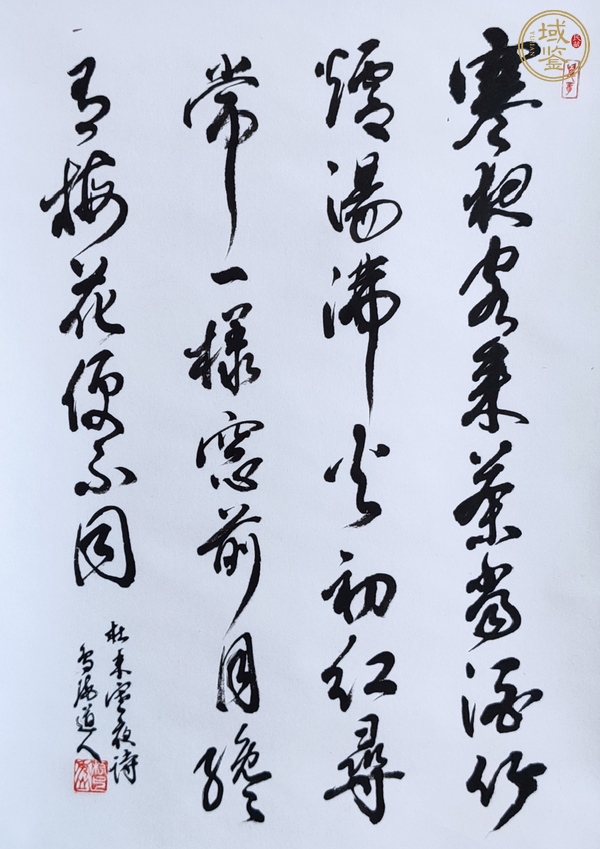 寒夜客来茶当酒竹
爐湯沸火初红尋
常一樣窓前月纔
有梅花便不同
杜耒寒夜诗
道人
域鉴